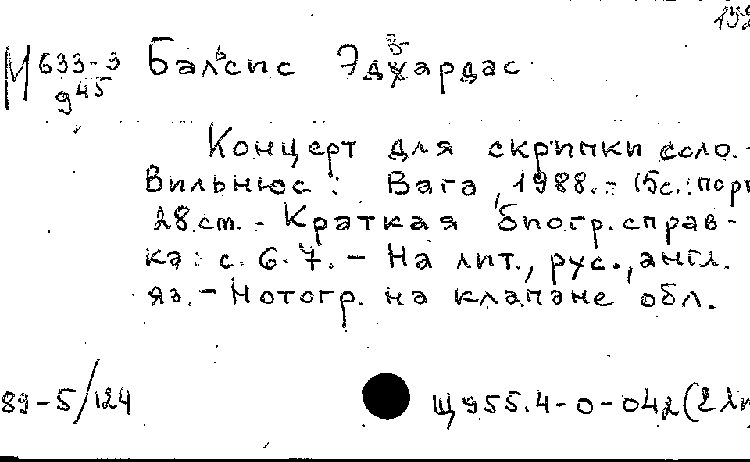 М 633-3 Бальспс Эдвардас
9 45
Концерт для скрипки соло.-
Вильнюс: Вага, 1988.-
28 см.- Краткая биогр. справ-
ка: с. 6-7.- На лит., рус., англ.
яз.- Нотогр. на клапане обл.
89-5/124 Щ955.4-0-042